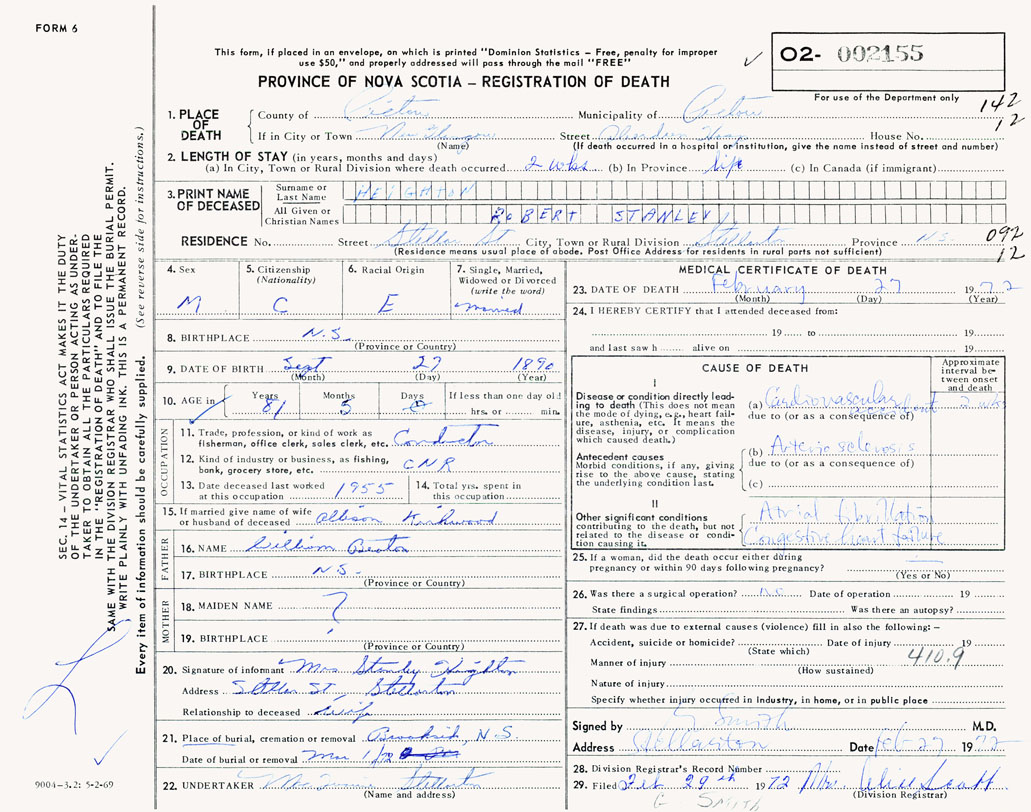 FORM 6
This form, if placed in an envelope, on which is printed "Dominion Statistics – Free, penalty for improper
use $50," and properly addressed will pass through the mail "FREE"
PROVINCE OF NOVA SCOTIA – REGISTRATION OF DEATH
O2- 002155
For use of the Department only
142
12
1. PLACE OF DEATH
County of Pictou Municipality of Pictou
If in City or Town New Glasgow Street Aberdeen Hosp House No.
(Name) (If death occurred in a hospital or institution, give the name instead of street and number)
2. LENGTH OF STAY (in years, months and days)
(a) In City, Town or Rural Division where death occurred 2 wks (b) In Province life (c) In Canada (if immigrant)
3. PRINT NAME OF DECEASED
Surname or Last Name HEIGHTON
All Given or Christian Names ROBERT STANLEY
RESIDENCE No. Street Stellar St City, Town or Rural Division Stellarton Province N.S.
(Residence means usual place of abode. Post Office Address for residents in rural parts not sufficient)
092
12
4. Sex M
5. Citizenship (Nationality) C
6. Racial Origin E
7. Single, Married, Widowed or Divorced (write the word) Married
8. BIRTHPLACE N.S.
(Province or Country)
9. DATE OF BIRTH Sept 27 1890
(Month) (Day) (Year)
10. AGE in Years 81 Months 5 Days 0 If less than one day old hrs. or min.
OCCUPATION
11. Trade, profession, or kind of work as fisherman, office clerk, sales clerk, etc. Conductor
12. Kind of industry or business, as fishing, bank, grocery store, etc. CNR
13. Date deceased last worked at this occupation 1955
14. Total yrs. spent in this occupation
15. If married give name of wife or husband of deceased Allison Kirkwood
FATHER
16. NAME William
17. BIRTHPLACE N.S.
(Province or Country)
MOTHER
18. MAIDEN NAME ?
19. BIRTHPLACE
(Province or Country)
20. Signature of informant Mrs Stanley Heighton
Address St, Stellarton
Relationship to deceased wife
21. Place of burial, cremation or removal N.S
Date of burial or removal Mar 1/72
22. UNDERTAKER Stellarton
(Name and address)
MEDICAL CERTIFICATE OF DEATH
23. DATE OF DEATH February 27 1972
(Month) (Day) (Year)
24. I HEREBY CERTIFY that I attended deceased from:
19 to 19
and last saw h alive on 19
CAUSE OF DEATH
Approximate interval between onset and death
I
Disease or condition directly leading to death (This does not mean the mode of dying, e.g., heart failure, asthenia, etc. It means the disease, injury, or complication which caused death.)
(a) Cardiovascular accident 2 wks
due to (or as a consequence of)
Antecedent causes
Morbid conditions, if any, giving rise to the above cause, stating the underlying condition last.
(b) Arterio sclerosis
due to (or as a consequence of)
(c)
II
Other significant conditions contributing to the death, but not related to the disease or condition causing it.
Atrial fibrillation
Congestive heart failure
25. If a woman, did the death occur either during pregnancy or within 90 days following pregnancy?
(Yes or No)
26. Was there a surgical operation? no Date of operation 19
State findings Was there an autopsy?
27. If death was due to external causes (violence) fill in also the following: –
Accident, suicide or homicide? Date of injury 19
(State which)
Manner of injury 410.9
(How sustained)
Nature of injury
Specify whether injury occurred in industry, in home, or in public place
Signed by G Smith M.D.
Address Stellarton Date Feb-27 1972
28. Division Registrar's Record Number
29. Filed Feb 29th 1972 Mrs. Alice Scott
(Division Registrar)
G. SMITH
SEC. 14 – VITAL STATISTICS ACT MAKES IT THE DUTY
OF THE UNDERTAKER OR PERSON ACTING AS UNDER-
TAKER TO OBTAIN ALL THE PARTICULARS REQUIRED
IN THE "REGISTRATION OF DEATH" AND TO FILE THE
SAME WITH THE DIVISION REGISTRAR WHO SHALL ISSUE THE BURIAL PERMIT.
WRITE PLAINLY WITH UNFADING INK. THIS IS A PERMANENT RECORD.
Every item of information should be carefully supplied. (See reverse side for instructions.)
9004-3.2: 5-2-69